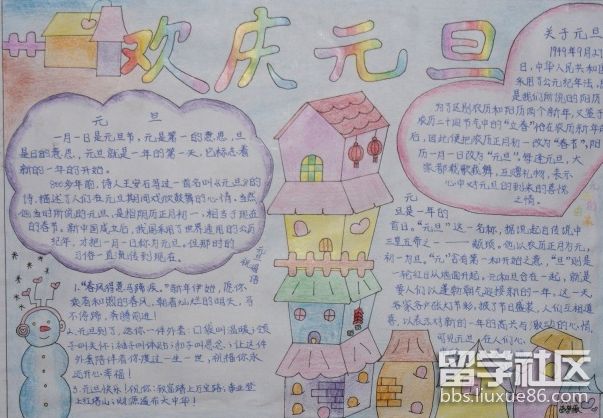 欢庆元旦
元旦
一月一日是元旦节,元是第一的意思,旦
是日的意思,元旦就是一年的第一天,它标志着
新的一年的开始。
800多年前,诗人王安石写过一首名叫《元旦》的
诗,描述了人们在元旦期间欢欣鼓舞的心情。当然
他当时所说的元旦,是指阴历正月初一,相当于现在
的春节。新中国成立后,我国采用了世界通用的公历
纪年,才把一月一日称为元旦,但那时的
习俗一直流传到现在。
关于元旦
1949年9月27
日,中华人民共和国
采用了公元纪年法,
是我们所说的阳历
为了区别农历和阳历两个新年,又鉴于
农历二十四节气中的“立春”恰在农历新年前
后,因此便把农历正月初一改为“春节”,阳
历一月一日改为“元旦”。每逢元旦,大
家都载歌载舞、互赠礼物,表示
心中对元旦的到来的喜悦
之情。
元
旦是一年的
首日。“元旦”这一名称,据说起自传说中
三皇五帝之一
他以农历正月为元,
初一为旦。“元”含有第一和开始之意,“旦”则是
一轮红日从地面升起。元和旦合在一起,就是
要人们以蓬勃朝气迎接新的一年,这一天
家家户户张灯节彩,披了节日盛装,人们互相道
喜,以表示对新的一年的高兴与
的心情,
可见元旦在人们心
元旦祝福语
1.“春风得意马蹄疾。”新年伊始,愿你
乘着和煦的春风,朝着灿烂的明天,马
不停蹄,奔腾前进!
2.元旦到了,送你一件外套:口袋叫温暖;领
子叫关怀;袖子叫体贴;扣子叫思念;让这件
外套陪伴着你度过一生一世,别指你永
远开心幸福!
3.元旦快乐!祝你:致富踏上万宝路,事业登
上红塔山;财源遍布大中华!
留学社区
bbs.liuxue86.com